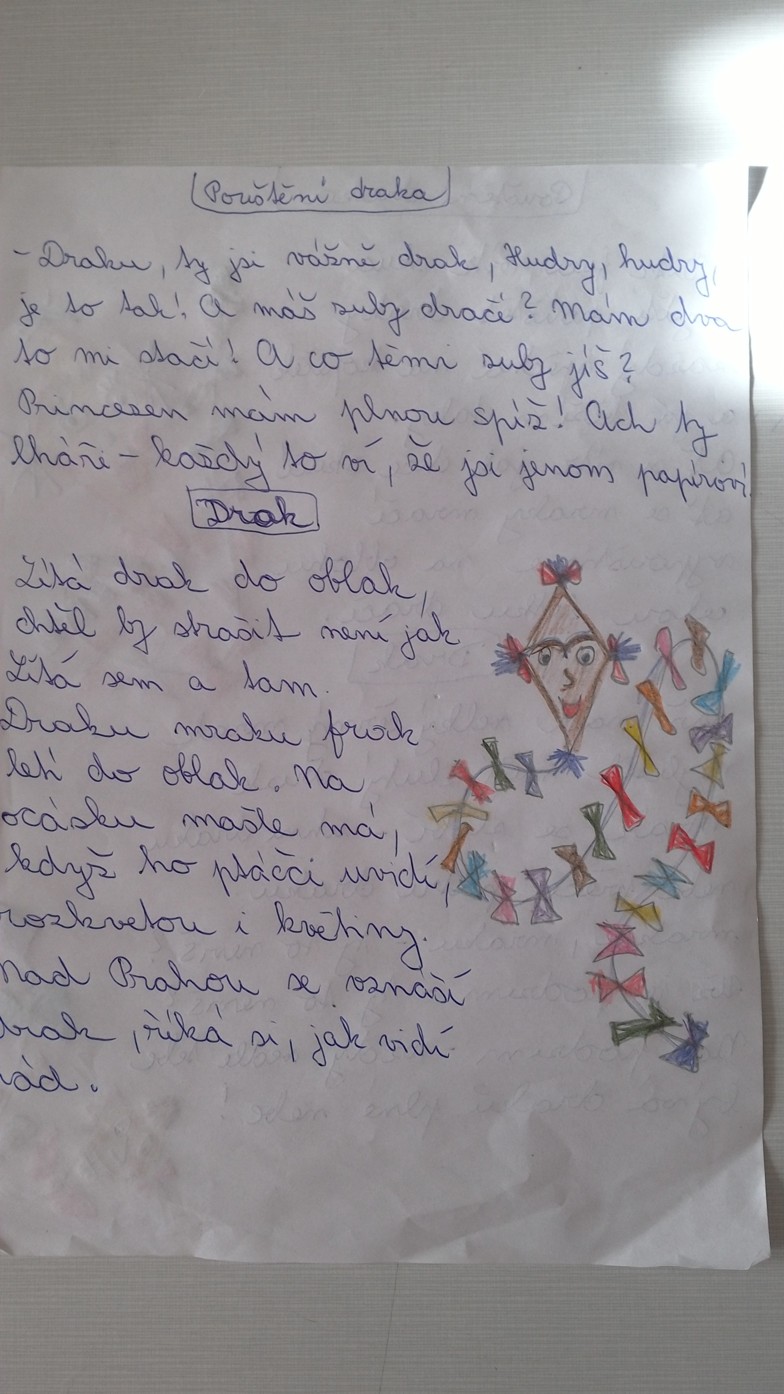 Pouštění draka
- Draku, ty jsi vážně drak, Hudry, hudry,
je to tak! A máš zuby dračí? Mám dva
to mi stačí! A co těmi zuby jíš?
Princezen mám plnou spíž! Ach ty
lháři - každý to ví, že jsi jenom papíroví.
Drak
Lítá drak do oblak,
chtěl by stračit není jak
Lítá sem a tam.
Draku mraku frnk
letí do oblak. Na
ocásku mašle má,
když ho ptáčci uvidí,
rozkvetou i květiny.
Nad Prahou se vznáší
drak, říká si, jak vidí
rád.